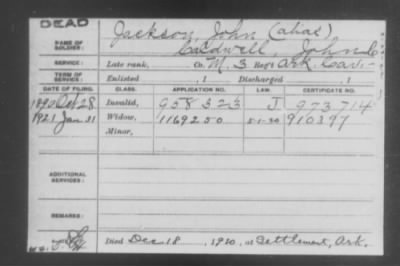 DEAD
Jackson, John (alias)
NAME OF SOLDIER: Caldwell, John C.
SERVICE: Late rank, Co. M. 3 Reg't Ark. Cav.
TERM OF SERVICE: Enlisted , 1 Discharged , 1
DATE OF FILING. CLASS. APPLICATION NO. LAW. CERTIFICATE NO.
1890 Oct 28 Invalid, 958 323 J 973 714
1921 Jan 31 Widow, 1169250 5-1-20 910397
Minor,
ADDITIONAL SERVICES:
REMARKS:
Died Dec 18, 1920, at Settlement, Ark.